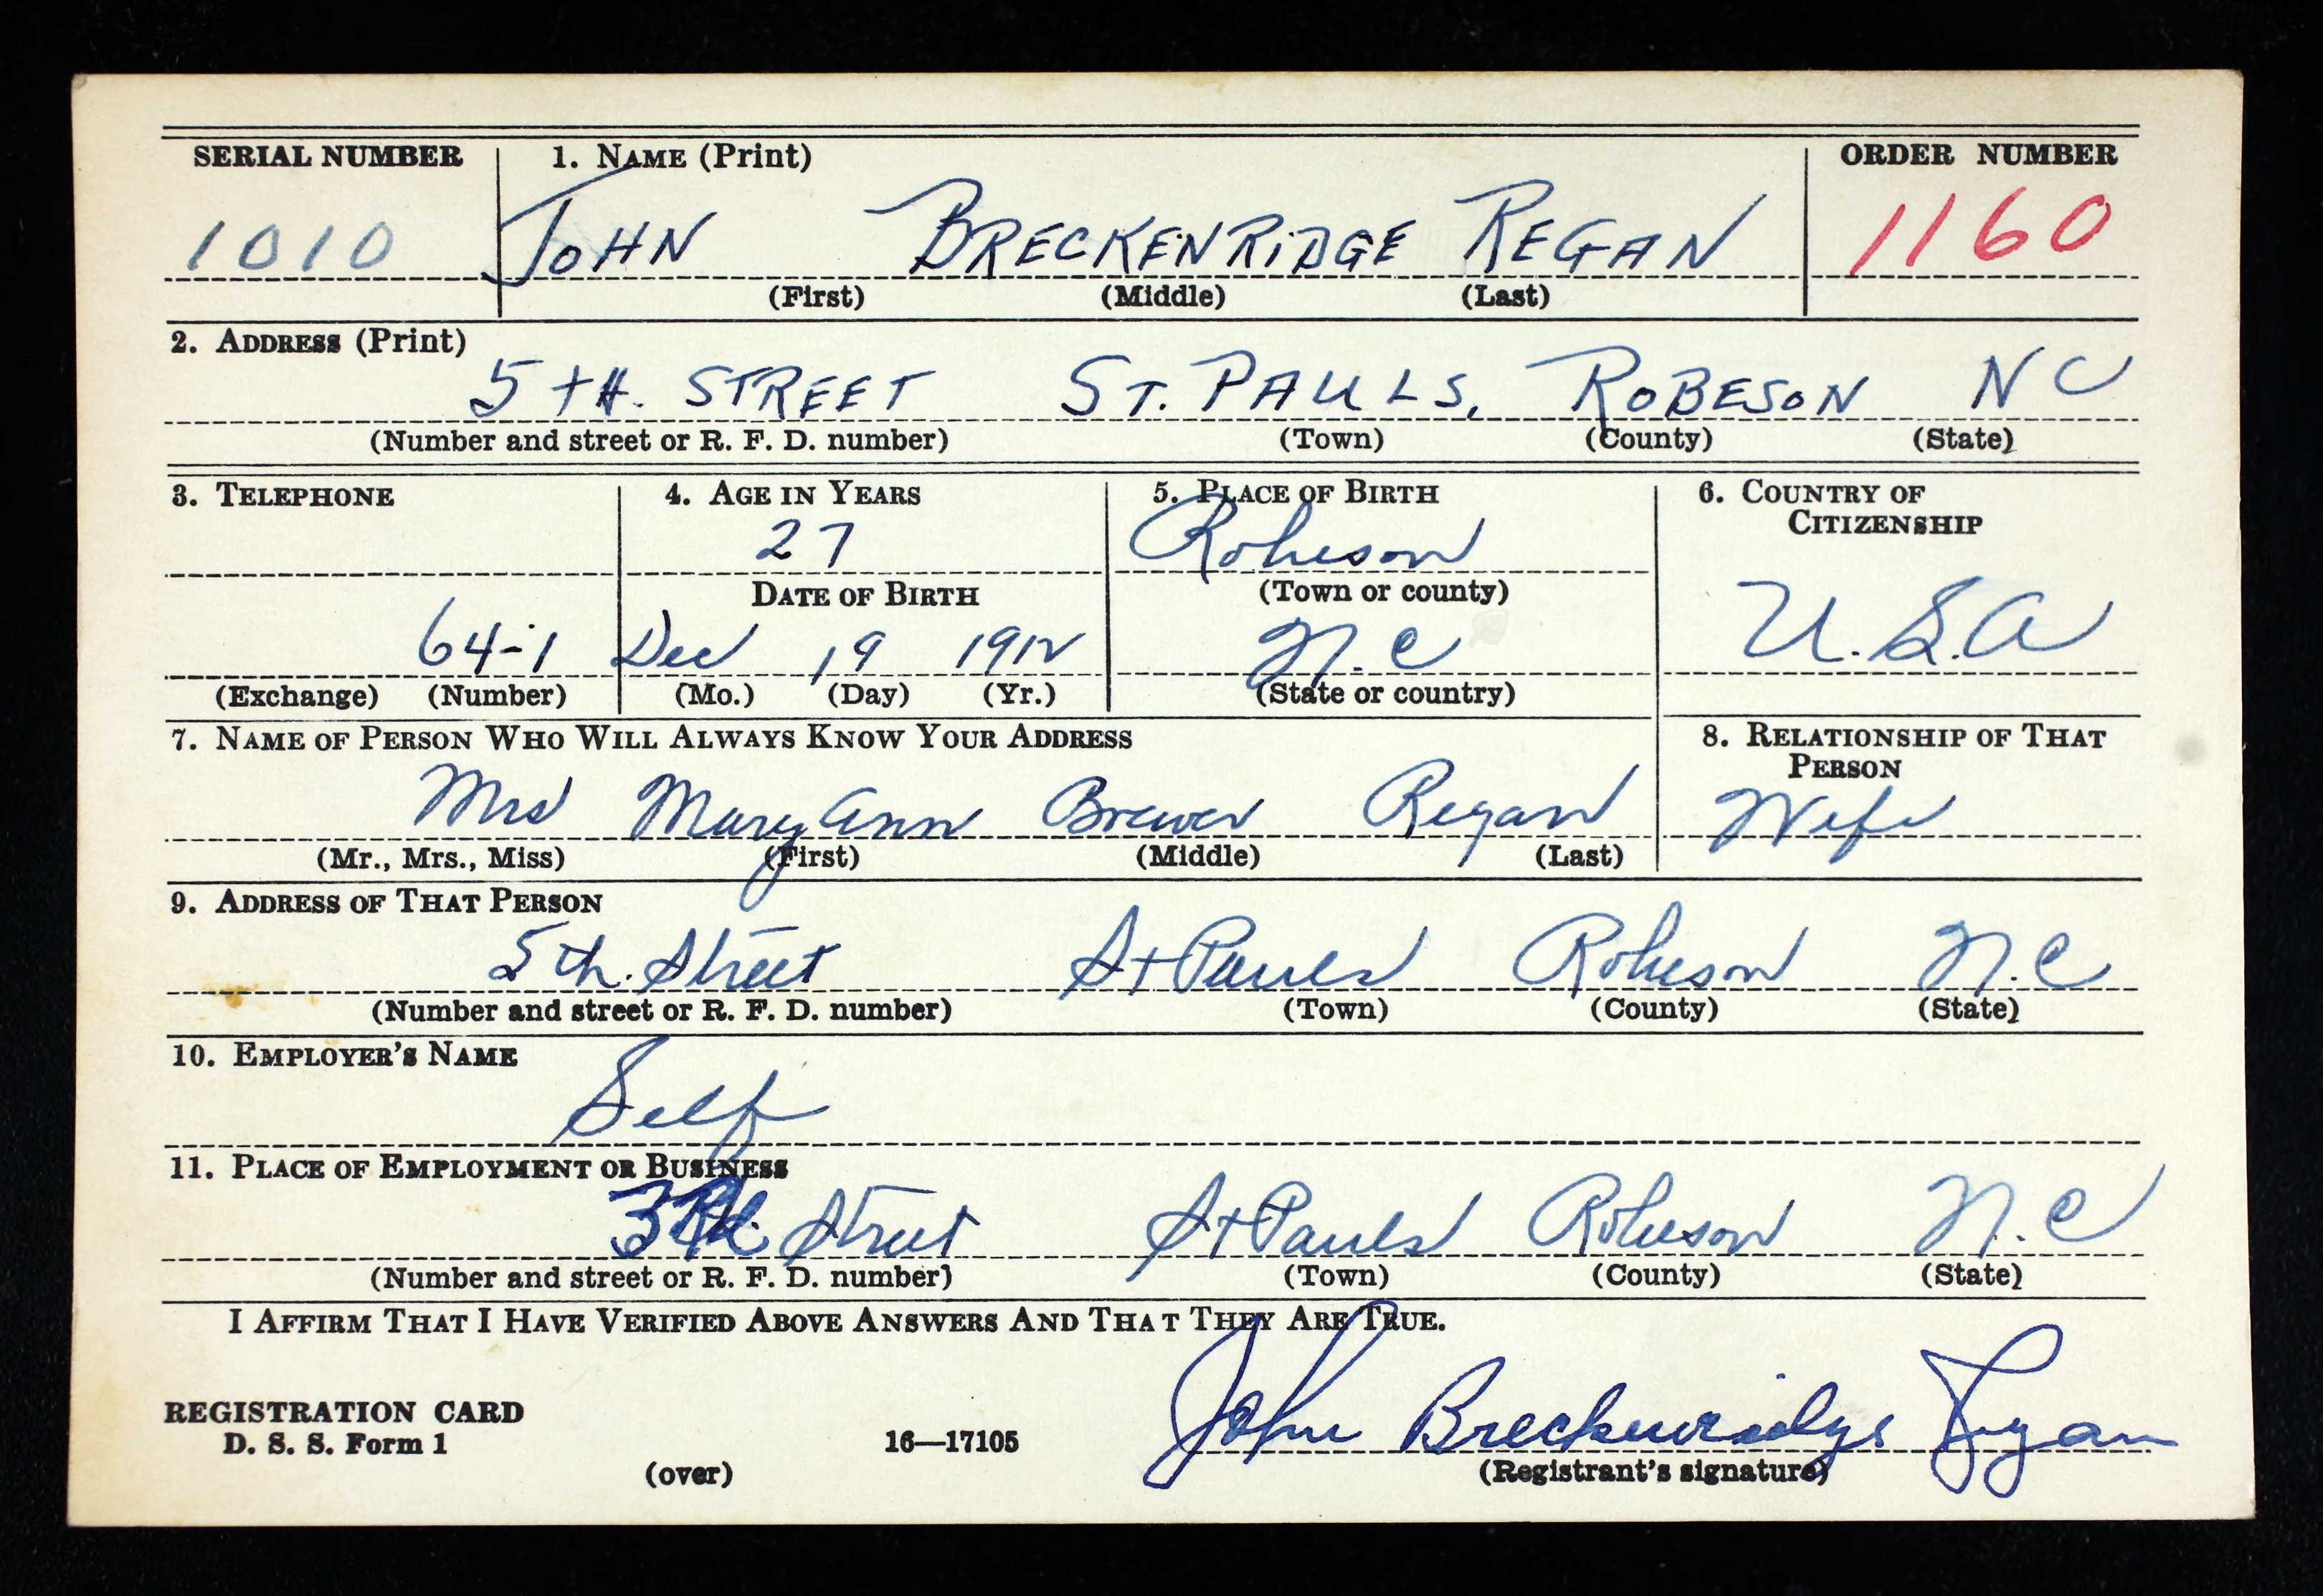 SERIAL NUMBER 1. NAME (Print) ORDER NUMBER
1010 JOHN BRECKENRIDGE REGAN 1160
(First) (Middle) (Last)
2. ADDRESS (Print)
5TH. STREET ST. PAULS, ROBESON NC
(Number and street or R. F. D. number) (Town) (County) (State)
3. TELEPHONE 4. AGE IN YEARS 5. PLACE OF BIRTH 6. COUNTRY OF
CITIZENSHIP
27 Robeson
DATE OF BIRTH (Town or county)
64-1 Dec 19 1912 N.C U.S.A
(Exchange) (Number) (Mo.) (Day) (Yr.) (State or country)
7. NAME OF PERSON WHO WILL ALWAYS KNOW YOUR ADDRESS 8. RELATIONSHIP OF THAT
PERSON
Mrs Mary Ann Brewer Regan Wife
(Mr., Mrs., Miss) (First) (Middle) (Last)
9. ADDRESS OF THAT PERSON
5th. Street St Pauls Robeson N.C
(Number and street or R. F. D. number) (Town) (County) (State)
10. EMPLOYER'S NAME
Self
11. PLACE OF EMPLOYMENT OR BUSINESS
3Rd Street St Pauls Robeson N.C
(Number and street or R. F. D. number) (Town) (County) (State)
I AFFIRM THAT I HAVE VERIFIED ABOVE ANSWERS AND THAT THEY ARE TRUE.
John Breckenridge Regan
REGISTRATION CARD
D. S. S. Form 1 16—17105
(over) (Registrant's signature)